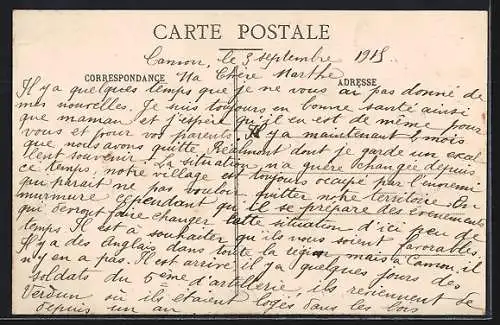 CARTE POSTALE
Camon, le 3 septembre 1915
CORRESPONDANCE
Ma Chère Marthe
ADRESSE
Il y a quelques temps que je ne vous ai pas donné de
mes nouvelles. Je suis toujours en bonne santé ainsi
que maman et j'espère qu'il en est de même pour
vous et pour vos parents. Il y a maintenant 2 mois
que nous avons quitté Réalmont dont je garde un excel
lent souvenir. La situation n'a guère changée depuis
ce temps, notre village est toujours occupé par l'ennemi
qui paraît ne pas vouloir quitter notre territoire. On
murmure cependant que il se prépare des évènements
qui devront faire changer cette situation d'ici peu de
temps. Il est à souhaiter qu'ils vous soient favorables.
Il y a des Anglais dans toute la région mais à Camon, il
n'y en a pas. Il est arrivé il y a quelques jours des
soldats du 5ème d'artillerie, ils reviennent de
Verdun où ils étaient logés dans les bois
depuis un an